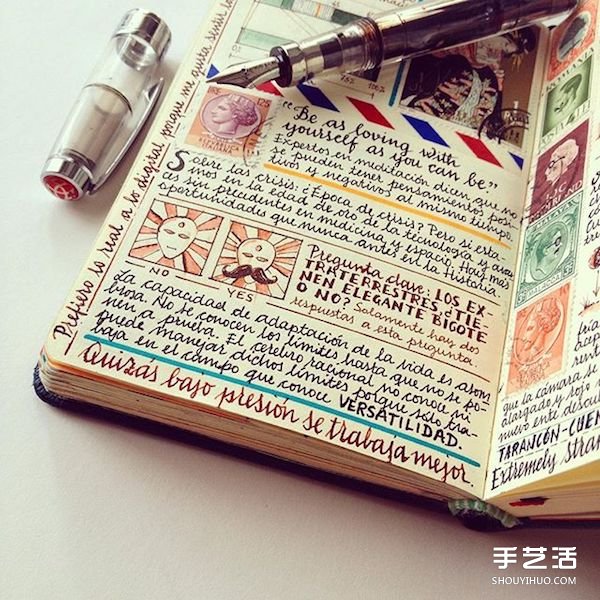 Prefiero lo real a lo digital porque me gusta sentir la
"Be as loving with
yourself as you can be."
Expertos en meditación dicen que no
se pueden tener pensamientos posi-
tivos y negativos al mismo tiempo.
Sobre las crisis: ¿Época de crisis? Pero si esta-
mos en la edad de oro de la tecnología y avan-
ces sin precedentes en medicina y espacio. Hay más
oportunidades que nunca antes en la historia.
NO
YES
Pregunta clave: LOS EX-
TRATERRESTRES ¿TIE-
NEN ELEGANTE BIGOTE
O NO? Solamente hay dos
respuestas a esta pregunta.
La capacidad de adaptación de la vida es asom
brosa. No se conocen los límites hasta que no se po-
nen a prueba. El cerebro racional no conoce ni
puede manejar dichos límites porque sólo tra-
baja en el campo que conoce VERSATILIDAD.
Quizás bajo presión se trabaja mejor.
que la cámara se
alargado y rojo
nuevo ente descu
TARANCÓN-CUEN
Extremely Stran
手艺活
SHOUYIHUO.COM